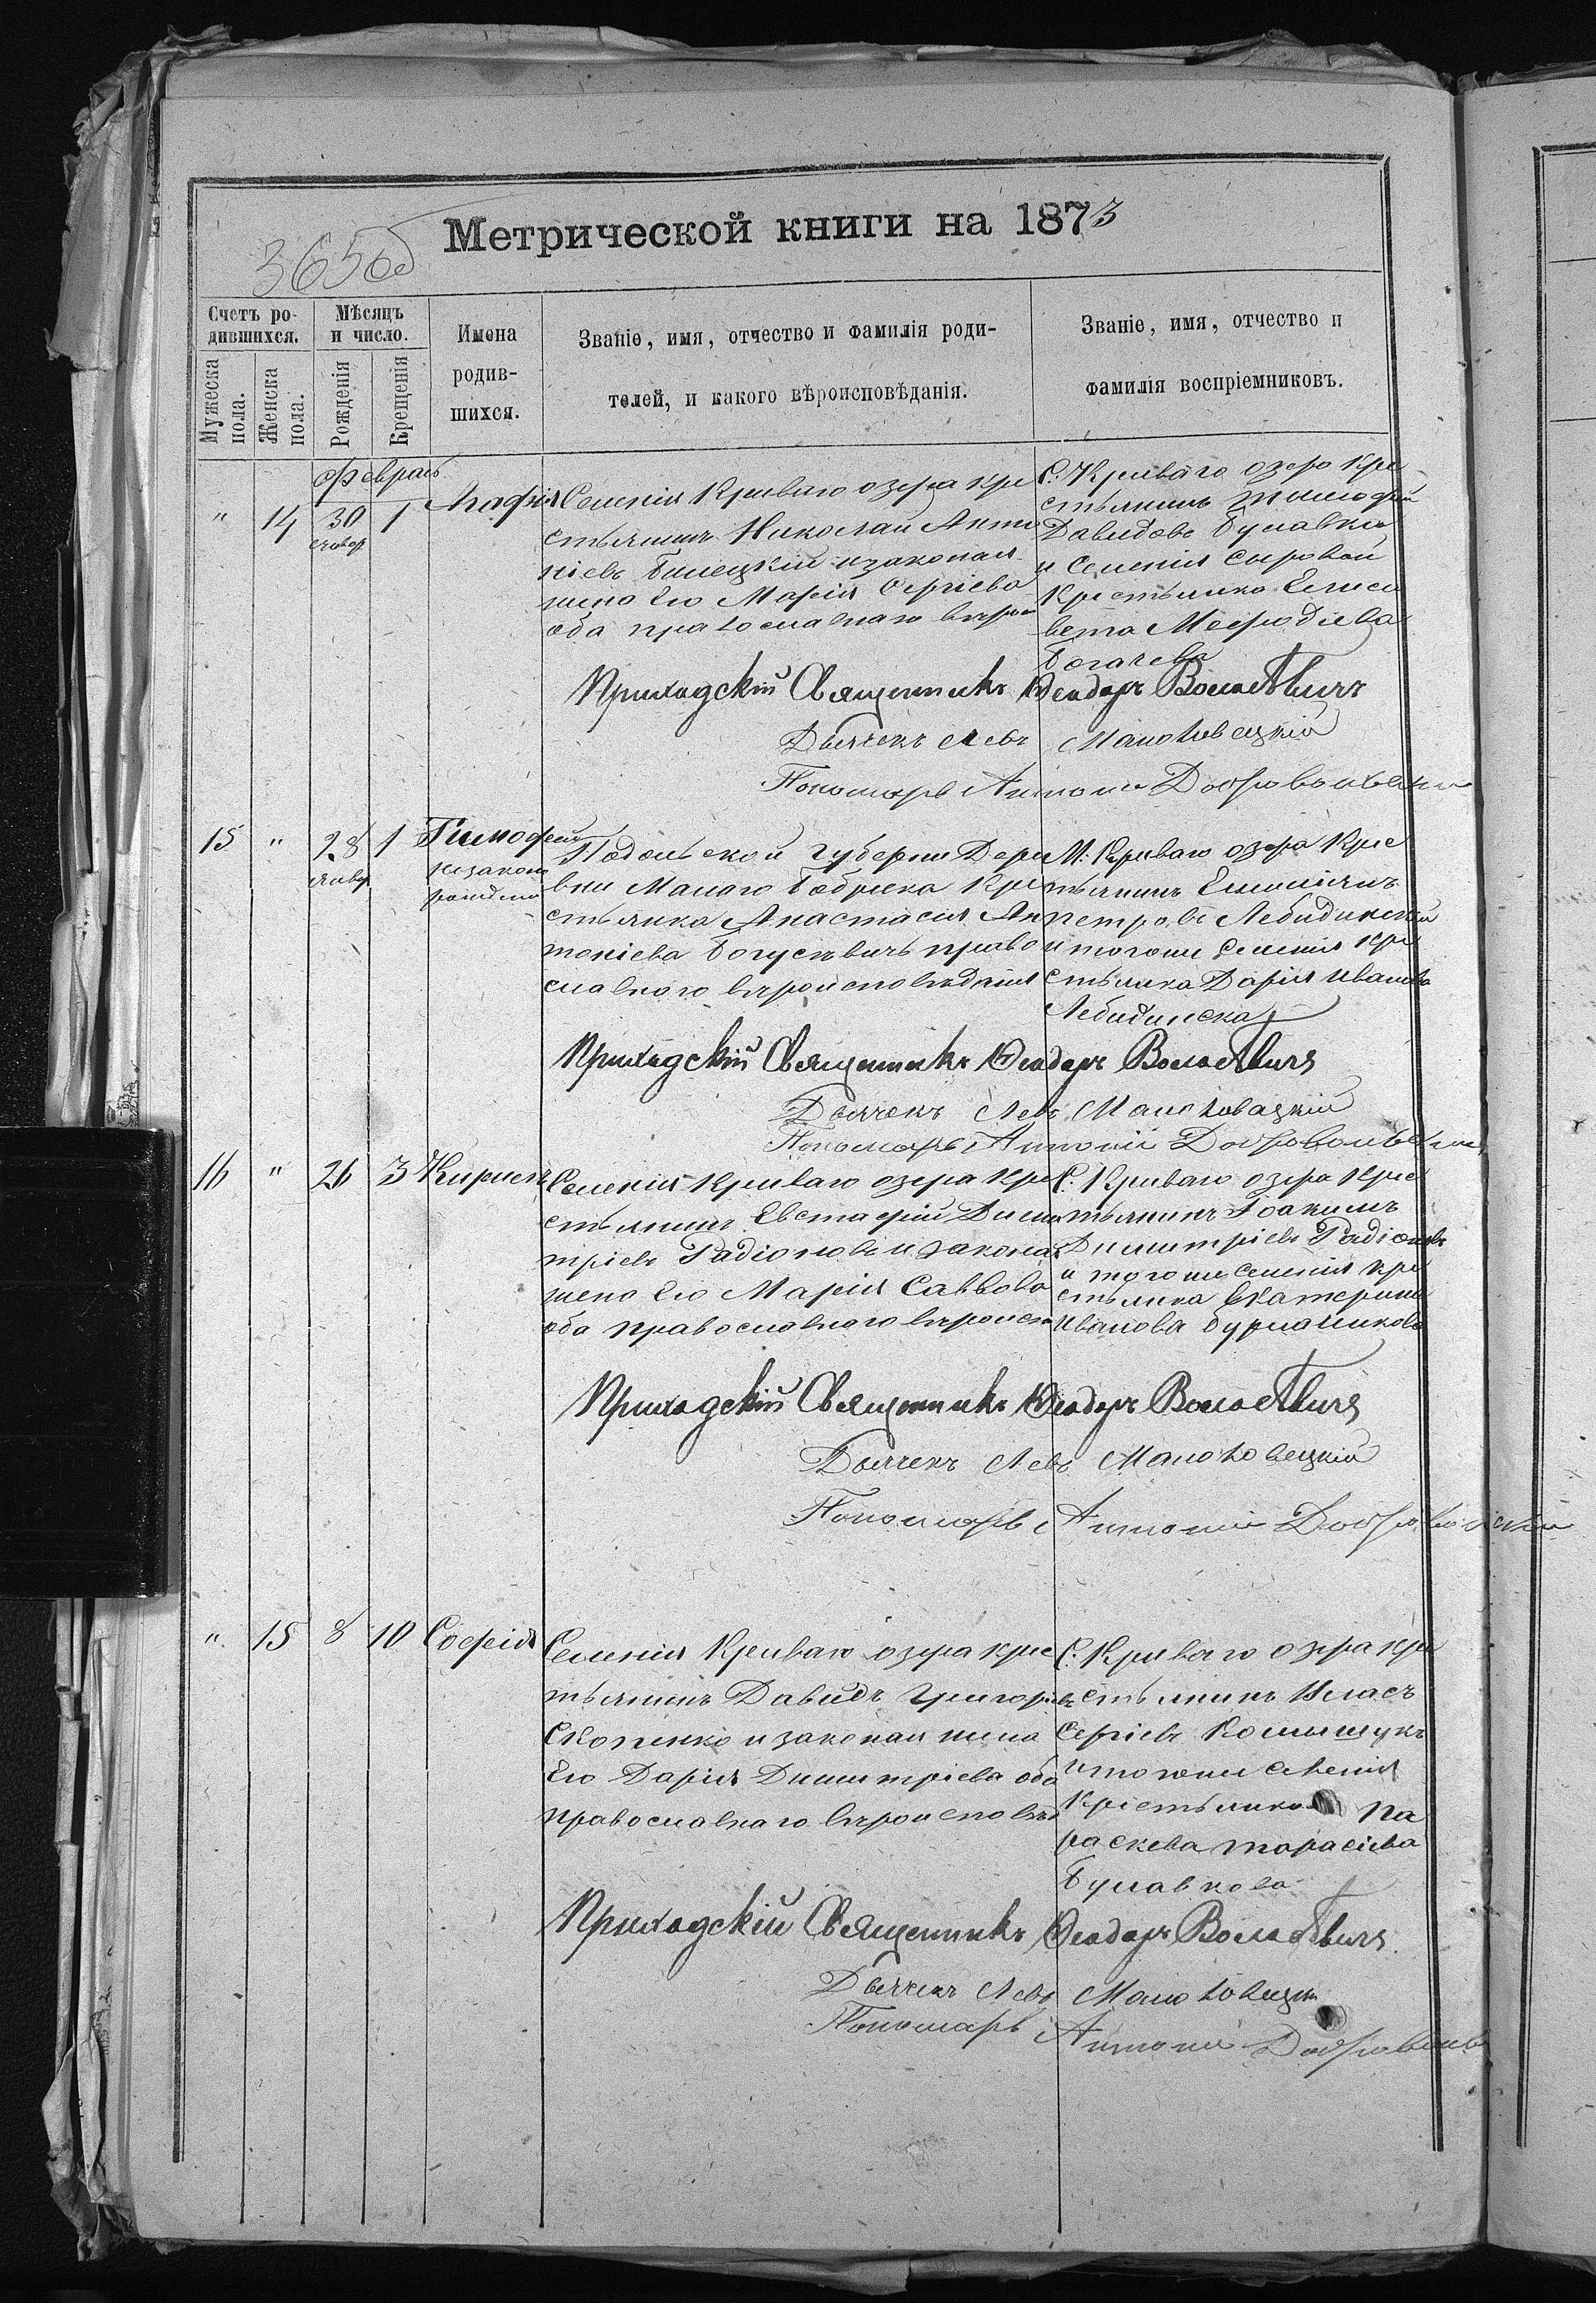 Метрической книги на 1873
365 об
Счетъ ро-
дившихся.
Мужеска
пола.
Женска
пола.
Мѣсяцъ
и число.
Рожденія
Крещенія
Имена
родив-
шихся.
Званіе, имя, отчество и фамилія роди-
телей, и какого вѣроисповѣданія.
Званіе, имя, отчество и
фамилія воспріемниковъ.
Февраль
" 14 30 1 Агафія
январ
Селенія Криваго озера кре
стьянинъ Николай Анто
ніевъ Билецкій и законая
жена Его Марія Сергіева
оба православнаго вѣрои
С. Криваго озера кре
стьянинъ Тимофей
Давидовъ Булавка
и Селенія Сыровой
Крестьянка Елиса
вета Мефодіева
Богачева
Приходскій Священникъ Ѳеодоръ
Дьячекъ Левъ Маньковецкій
Пономарь Антоній Добровольскій
15 " 28 1 Тимофей
январ
незаконо
рожденъ
Подольской Губерни Дере
вни Малаго Бобрика Кре
стьянка Анастасія Ан
тоніева Богуславъ право
славного вѣроисповѣданія
М. Криваго озера Крес
тьянинъ Емиліянъ
Петровъ Лебидинскій
и тогоже Селенія кре
стьянка Дарія Иванова
Лебидинска
Приходскій Священникъ Ѳеодоръ
Дьячекъ Левъ Маньковецкій
Пономарь Антоній Добровольскій
16 " 26 3 Кирилъ
Селенія Криваго озера Кре
стьянинъ Евстафій Дими
тріевъ Радіоновъ и законая
жена Его Марія Саввова
оба православного вѣроиспо
С. Криваго озера Крес
тьянинъ Іоакимъ
Димитріевъ Радіоновъ
и тогоже селенія кре
стьянка Екатерина
Иванова
Приходскій Священникъ Ѳеодоръ
Дьячекъ Левъ Маньковецкій
Пономарь Антоній Добровольскій
" 15 8 10 Софія
Селенія Криваго озера крес
тьянинъ Давидъ Григоріевъ
Скопенко и законая жена
Его Дарія Димитріева оба
православнаго вѣроисповѣ
С. Криваго озера кре
стьянинъ Власъ
Сергіевъ
и тогоже селенія
Крестьянка Па
раскева Тарасіева
Булавкова
Приходскій Священникъ Ѳеодоръ
Дьячекъ Левъ Маньковецкій
Пономарь Антоній Добровольс